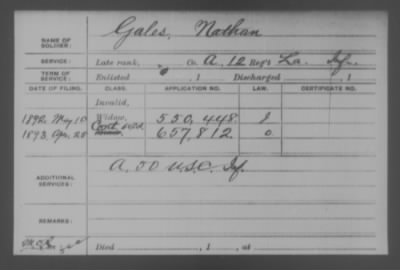 NAME OF SOLDIER: Gales, Nathan
SERVICE: Late rank, Co. A, 12 Reg't La. Inf.
TERM OF SERVICE: Enlisted , 1 Discharged , 1
DATE OF FILING. CLASS. APPLICATION NO. LAW. CERTIFICATE NO.
Invalid,
1892, May 10 Widow, 550,448
1893, Apr. 25 657,812
ADDITIONAL SERVICES: A, 50 U.S.C. Inf.
REMARKS:
Died , 1 , at